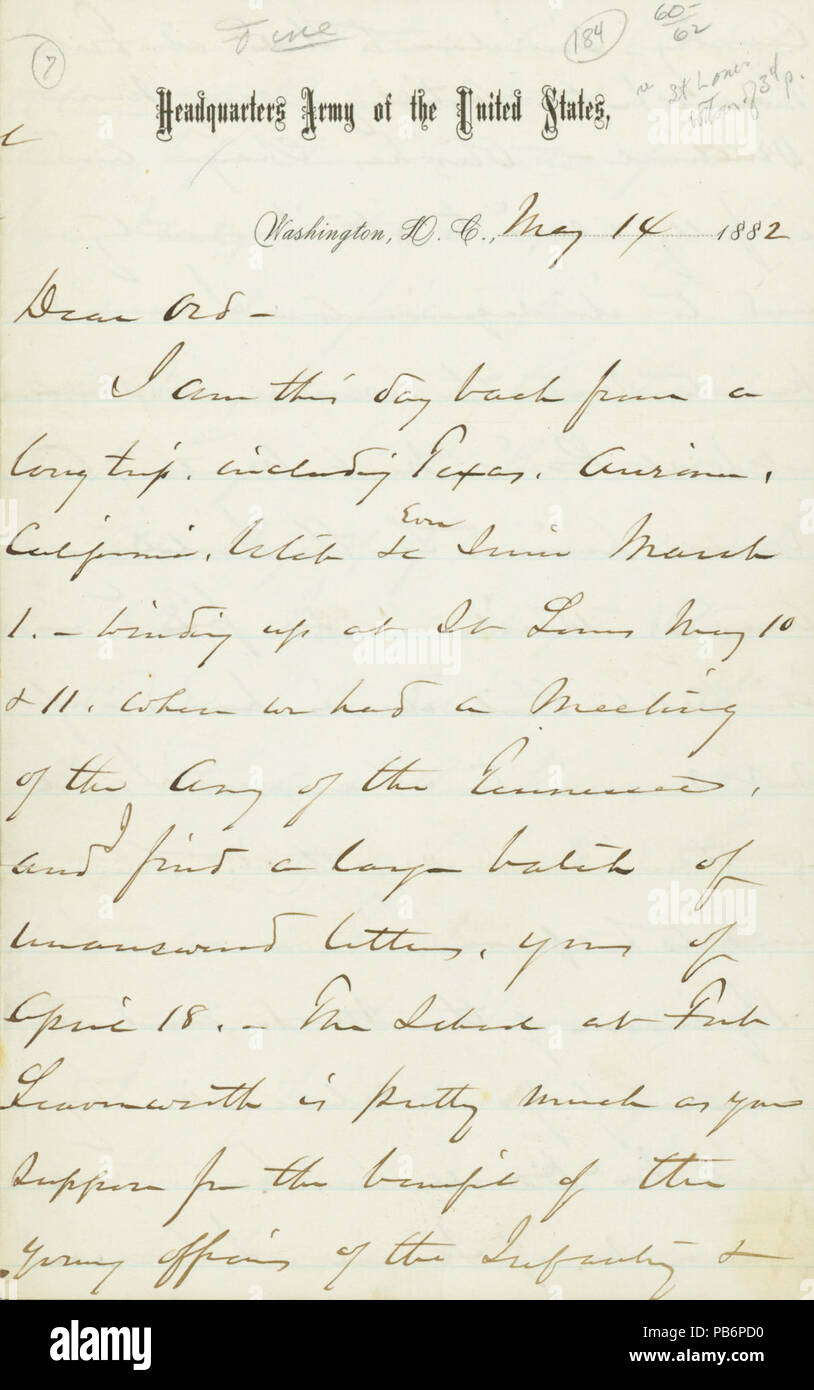 Fine
7
184
60-
62
re St Louis
bottom of 3d p.
Headquarters Army of the United States,
Washington, D. C., May 14 1882
Dear Ord -
I am this day back from a
long trip. including Texas. Arizona.
California. Utah &c Ever Since March
1. - winding up at St Louis May 10
& 11. when we had a Meeting
of the Army of the Tennessee,
and I find a large batch of
unanswered letters, yours of
April 18. - The School at Fort
Leavenworth is pretty much as you
suppose for the benefit of the
young officers of the Infantry &
alamy
alamy
Image ID: PB6PD0
www.alamy.com